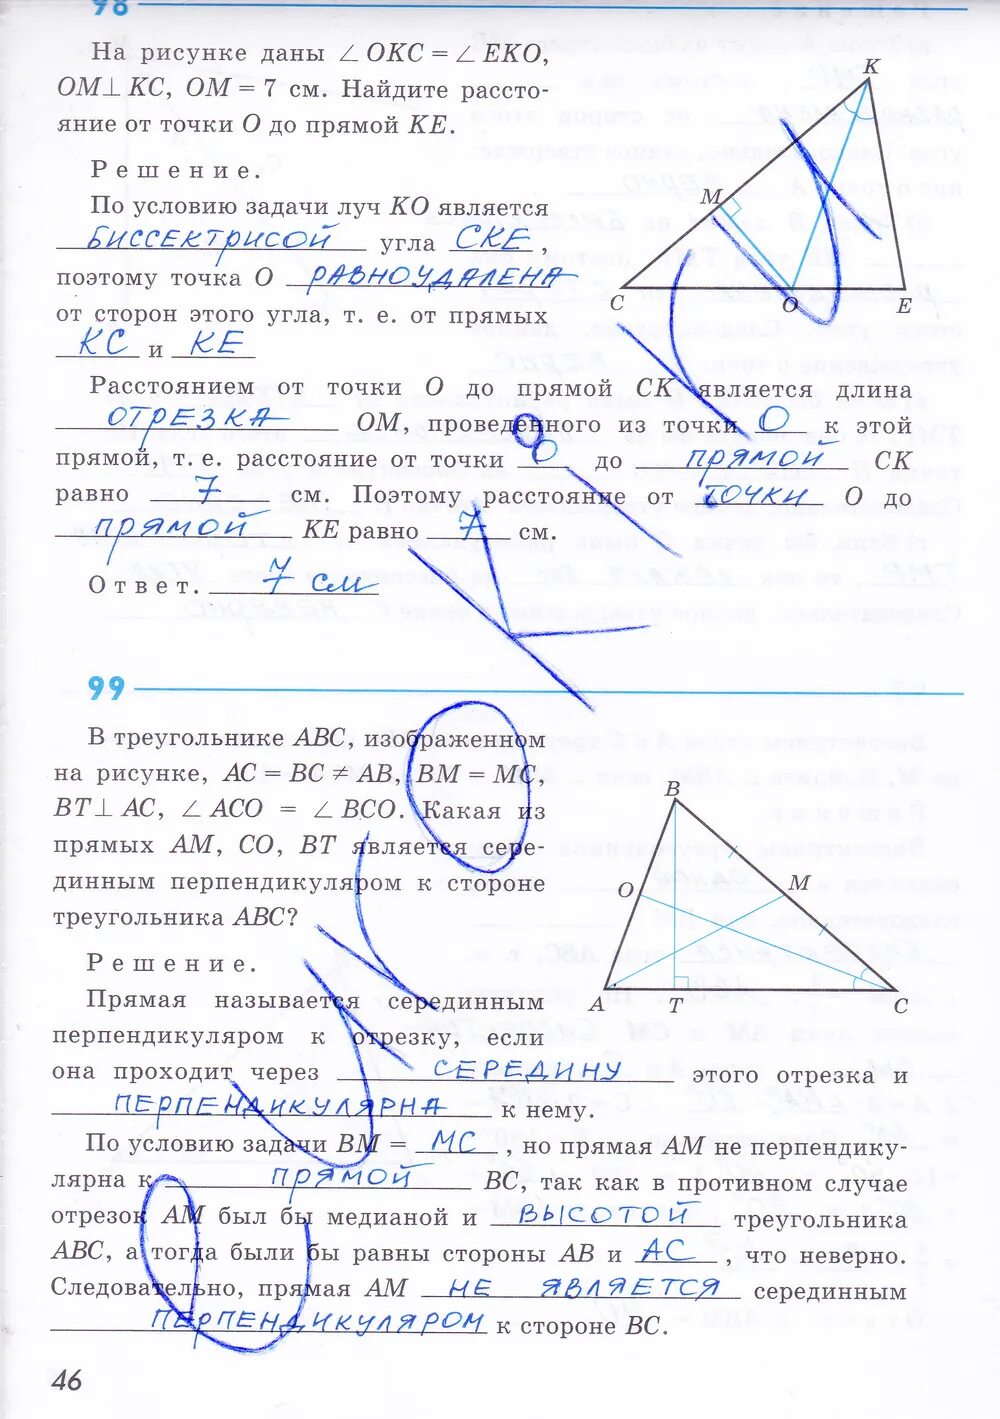 98
На рисунке даны ∠ OKC = ∠ EKO,
OM⊥ KC, OM = 7 см. Найдите рассто-
яние от точки O до прямой KE.
Решение.
По условию задачи луч KO является
БИССЕКТРИСОЙ угла СКЕ,
поэтому точка O РАВНОУДАЛЕНА
от сторон этого угла, т. е. от прямых
КС и КЕ
Расстоянием от точки O до прямой CK является длина
ОТРЕЗКА OM, проведенного из точки О к этой
прямой, т. е. расстояние от точки О до ПРЯМОЙ CK
равно 7 см. Поэтому расстояние от ТОЧКИ O до
ПРЯМОЙ KE равно 7 см.
Ответ. 7 см
K
M
C
O
E
99
В треугольнике ABC, изображенном
на рисунке, AC = BC ≠ AB, BM = MC,
BT⊥ AC, ∠ ACO = ∠ BCO. Какая из
прямых AM, CO, BT является сере-
динным перпендикуляром к стороне
треугольника ABC?
Решение.
Прямая называется серединным
перпендикуляром к отрезку, если
она проходит через СЕРЕДИНУ этого отрезка и
ПЕРПЕНДИКУЛЯРНА к нему.
По условию задачи BM = МС, но прямая AM не перпендику-
лярна к ПРЯМОЙ BC, так как в противном случае
отрезок AM был бы медианой и ВЫСОТОЙ треугольника
ABC, а тогда были бы равны стороны AB и АС, что неверно.
Следовательно, прямая AM НЕ ЯВЛЯЕТСЯ серединным
ПЕРПЕНДИКУЛЯРОМ к стороне BC.
B
O
M
A
T
C
46